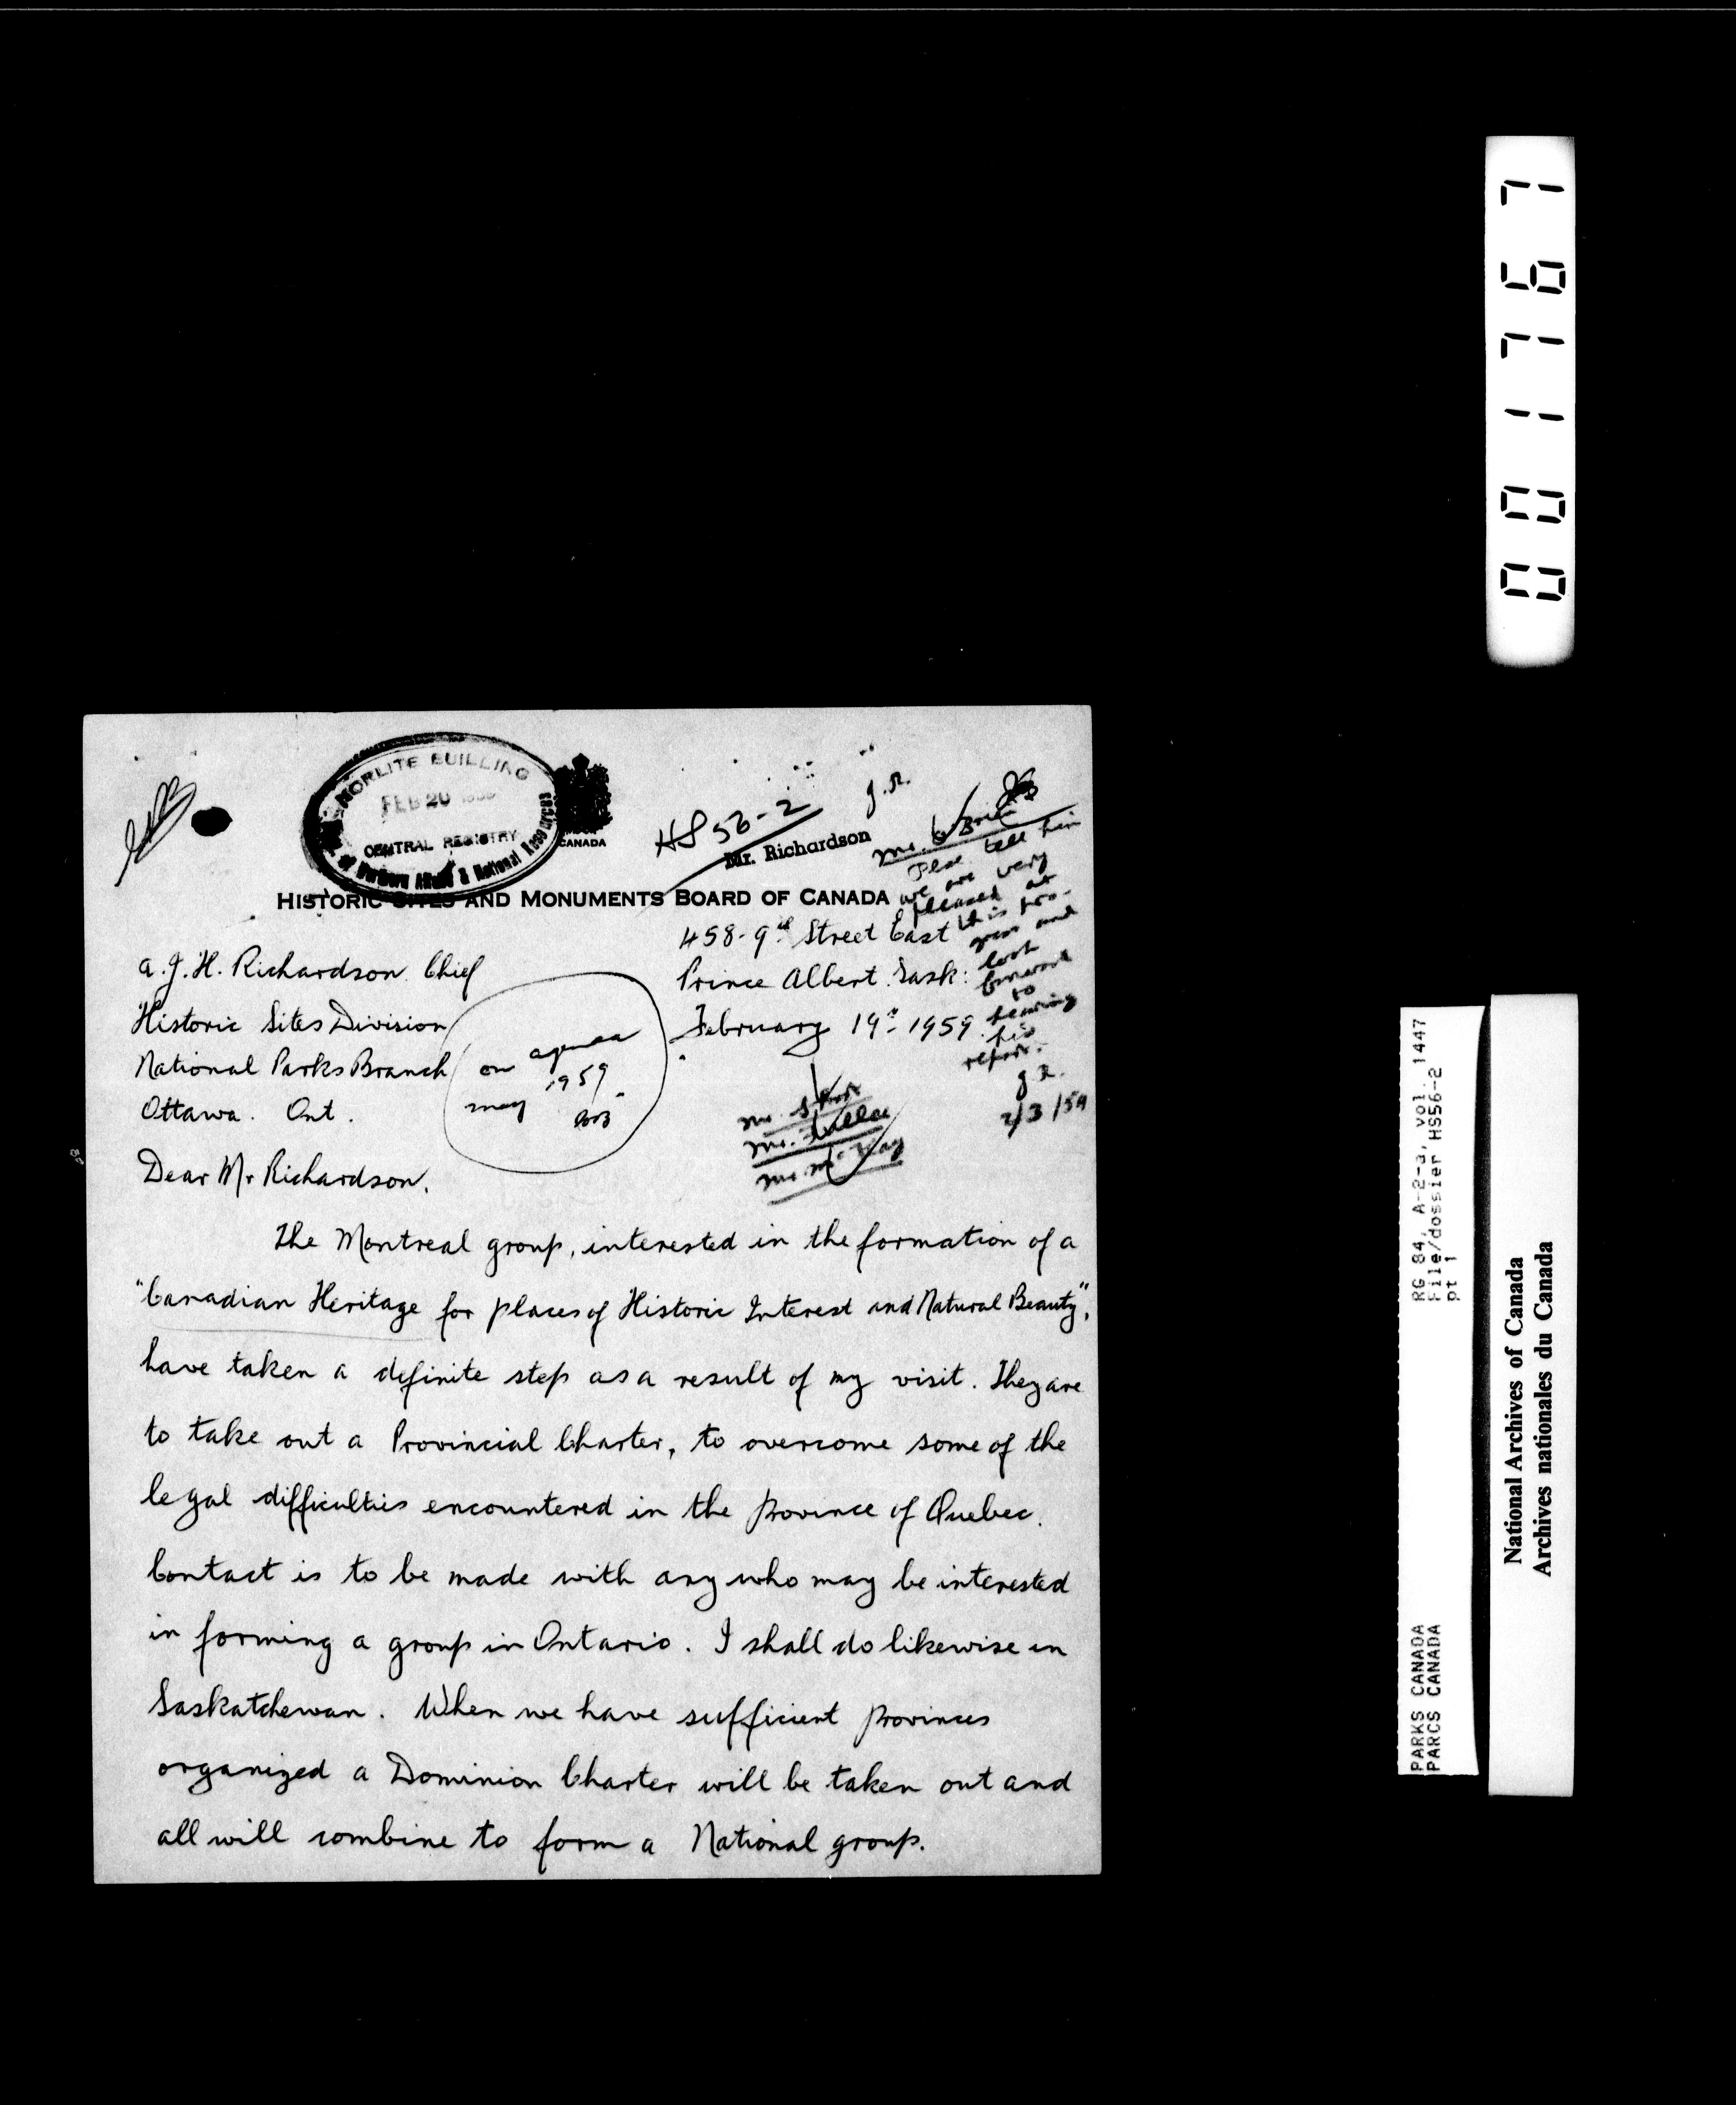 NORLITE BUILDING
FEB 20
CENTRAL REGISTRY
Northern Affairs & National Resources
CANADA
HS 56-2
J.R.
Mr. Richardson
HISTORIC SITES AND MONUMENTS BOARD OF CANADA
Please tell him
we are very
pleased at
this pro-
gress and
look
forward
to
hearing
his
report.
J.R.
2/3/59
458-9th Street East
Prince Albert. Sask:
February 19th 1959.
A.J.H. Richardson Chief
Historic Sites Division
National Parks Branch
Ottawa. Ont.
on agenda
May 1959
Mr.
Mr.
Mr.
Dear Mr Richardson.
The Montreal group, interested in the formation of a
"Canadian Heritage for places of Historic Interest and Natural Beauty",
have taken a definite step as a result of my visit. They are
to take out a Provincial Charter, to overcome some of the
legal difficulties encountered in the province of Quebec.
Contact is to be made with any who may be interested
in forming a group in Ontario. I shall do likewise in
Saskatchewan. When we have sufficient provinces
organized a Dominion Charter will be taken out and
all will combine to form a National group.
001767
RG 84, A-2-a, vol. 1447
File/dossier HS56-2
pt 1
PARKS CANADA
PARCS CANADA
National Archives of Canada
Archives nationales du Canada